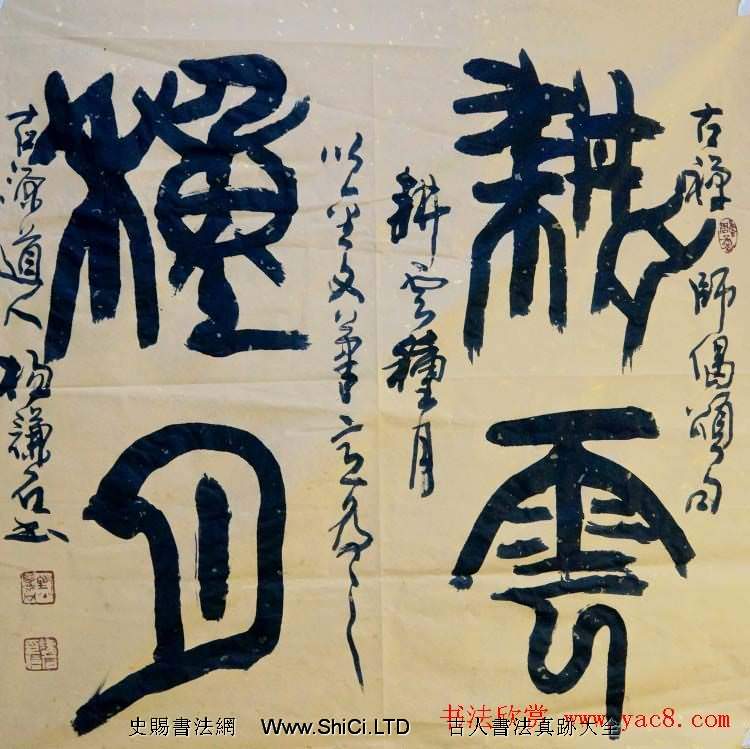 古禪師偈頌句
耕雲
耕雲種月
以金文筆意為之
種月
古源道人楊謙石書
史賜書法網 Www.ShiCi.LTD 古人書法真跡大全
书法欣赏 www.yac8.com